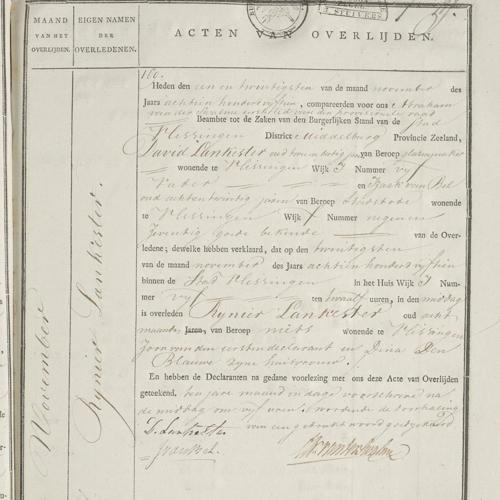 MAAND
VAN HET
OVERLIJDEN.
EIGEN NAMEN
DER
OVERLEDENEN.
ACTEN VAN OVERLIJDEN.
November
Rynier Lankester.
100.
Heden den een en twintigsten van de maand november des
Jaars achtien honderd vyftien, compareerden voor ons Abraham
Beambte tot de Zaken van den Burgerlijken Stand van de Stad
Vlissingen District Middelburg Provincie Zeeland,
David Lankester oud twee en dertig jaar van Beroep
wonende te Vlissingen Wijk J Nummer vyf
Vader en Izaak van Bel
oud achtentwintig jaren van Beroep Stadsbode wonende
te Vlissingen Wijk Nummer negen en
zeventig goede bekende van de Over-
ledene; dewelke hebben verklaard, dat op den twintigsten
van de maand november des Jaars achtien honderd vyftien
binnen de Stad Vlissingen in het Huis Wijk J Num-
mer vyf ten twaalf uuren, in den middag
is overleden Rynier Lankester oud acht
maanden Jaren, van Beroep niets wonende te Vlissingen
Zoon van den eersten declarant en Dina Den
Blauwe zyne huisvrouw.
En hebben de Declaranten na gedane voorlezing met ons deze Acte van Overlijden
geteekend. ten jare maand en dage voorschreve na
de middag om vyf uren. Goedkeurende de doorhaling
van een gedrukt woord goedgekeurd
D. Lankester